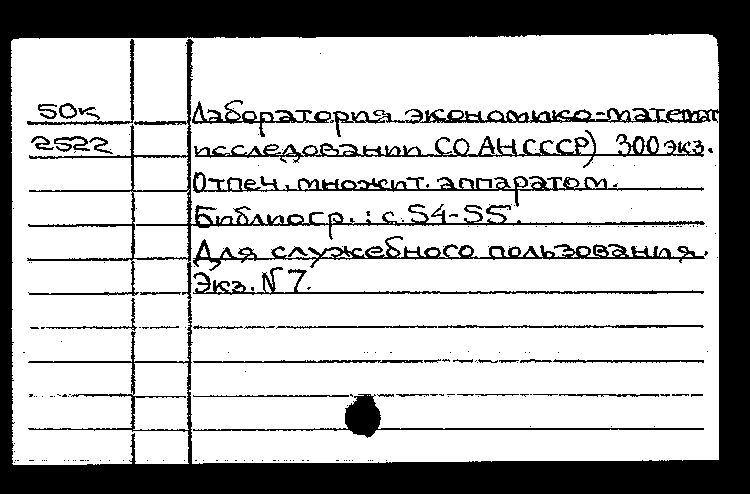 50к Лаборатория экономико-математ
2522 исследований СО АН СССР) 300 экз.
Отпеч. множит. аппаратом.
Библиогр.: с. 54-55.
Для служебного пользования.
Экз. N 7.